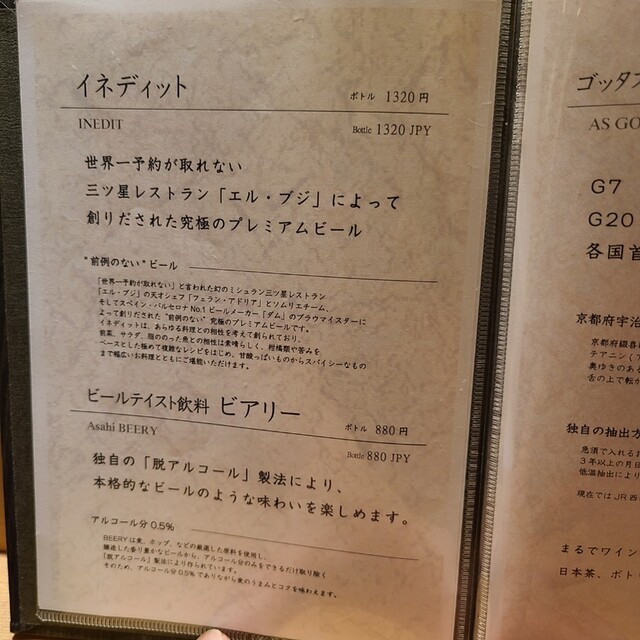 イネディット
ボトル 1320円
INEDIT
Bottle 1320 JPY
世界一予約が取れない
三ツ星レストラン「エル・ブジ」によって
創りだされた究極のプレミアムビール
"前例のない"ビール
「世界一予約が取れない」と言われた幻のミシュラン三ツ星レストラン
「エル・ブジ」の天才シェフ「フェラン・アドリア」とソムリエチーム、
そしてスペイン・バルセロナNo.1ビールメーカー「ダム」のブラウマイスターに
よって創りだされた"前例のない"究極のプレミアムビールです。
イネディットは、あらゆる料理との相性を考えて創られており、
前菜、サラダ、脂ののった魚との相性は素晴らしく、柑橘類や苦みを
ベースとした極めて複雑なレシピをはじめ、甘酸っぱいものからスパイシーなもの
まで幅広いお料理とともにご堪能いただけます。
ビールテイスト飲料 ビアリー
ボトル 880円
Asahi BEERY
Bottle 880 JPY
独自の「脱アルコール」製法により、
本格的なビールのような味わいを楽しめます。
アルコール分0.5%
BEERYは麦、ホップ、などの厳選した原料を使用し、
醸造した香り豊かなビールから、アルコール分のみをできるだけ取り除く
「脱アルコール」製法により作られています。
そのため、アルコール分0.5%でありながら麦のうまみとコクを味わえます。
ゴッタ
AS GO
G7
G20
各国首
京都府宇治
京都府綴喜
テアニン(
奥ゆきのある
舌の上で転が
独自の抽出方
急須で入れる
3年以上の月日
低温抽出により
現在ではJR西
まるでワイン
日本茶、ボト